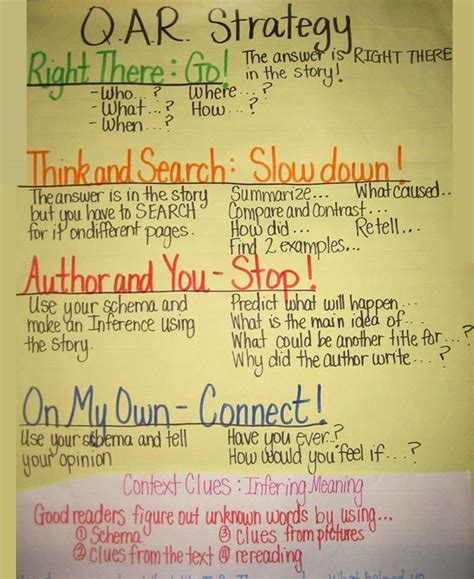 Q.A.R. Strategy
Right There: Go! The answer is RIGHT THERE
in the story!
-Who...? Where...?
-What...? How...?
-When...?
Think and Search: Slow down!
The answer is in the story
but you have to SEARCH
for it on different pages.
Summarize... What caused...
Compare and Contrast...
How did... Retell...
Find 2 examples...
Author and You - Stop!
Use your schema and
make an Inference using
the story.
Predict what will happen...
What is the main idea of...
What could be another title for...?
Why did the author write...?
On My Own - Connect!
Use your schema and tell
your opinion
Have you ever..?
How would you feel if...?
Context Clues: Infering Meaning
Good readers figure out unknown words by using...
① Schema ③ clues from pictures
② clues from the text ④ rereading